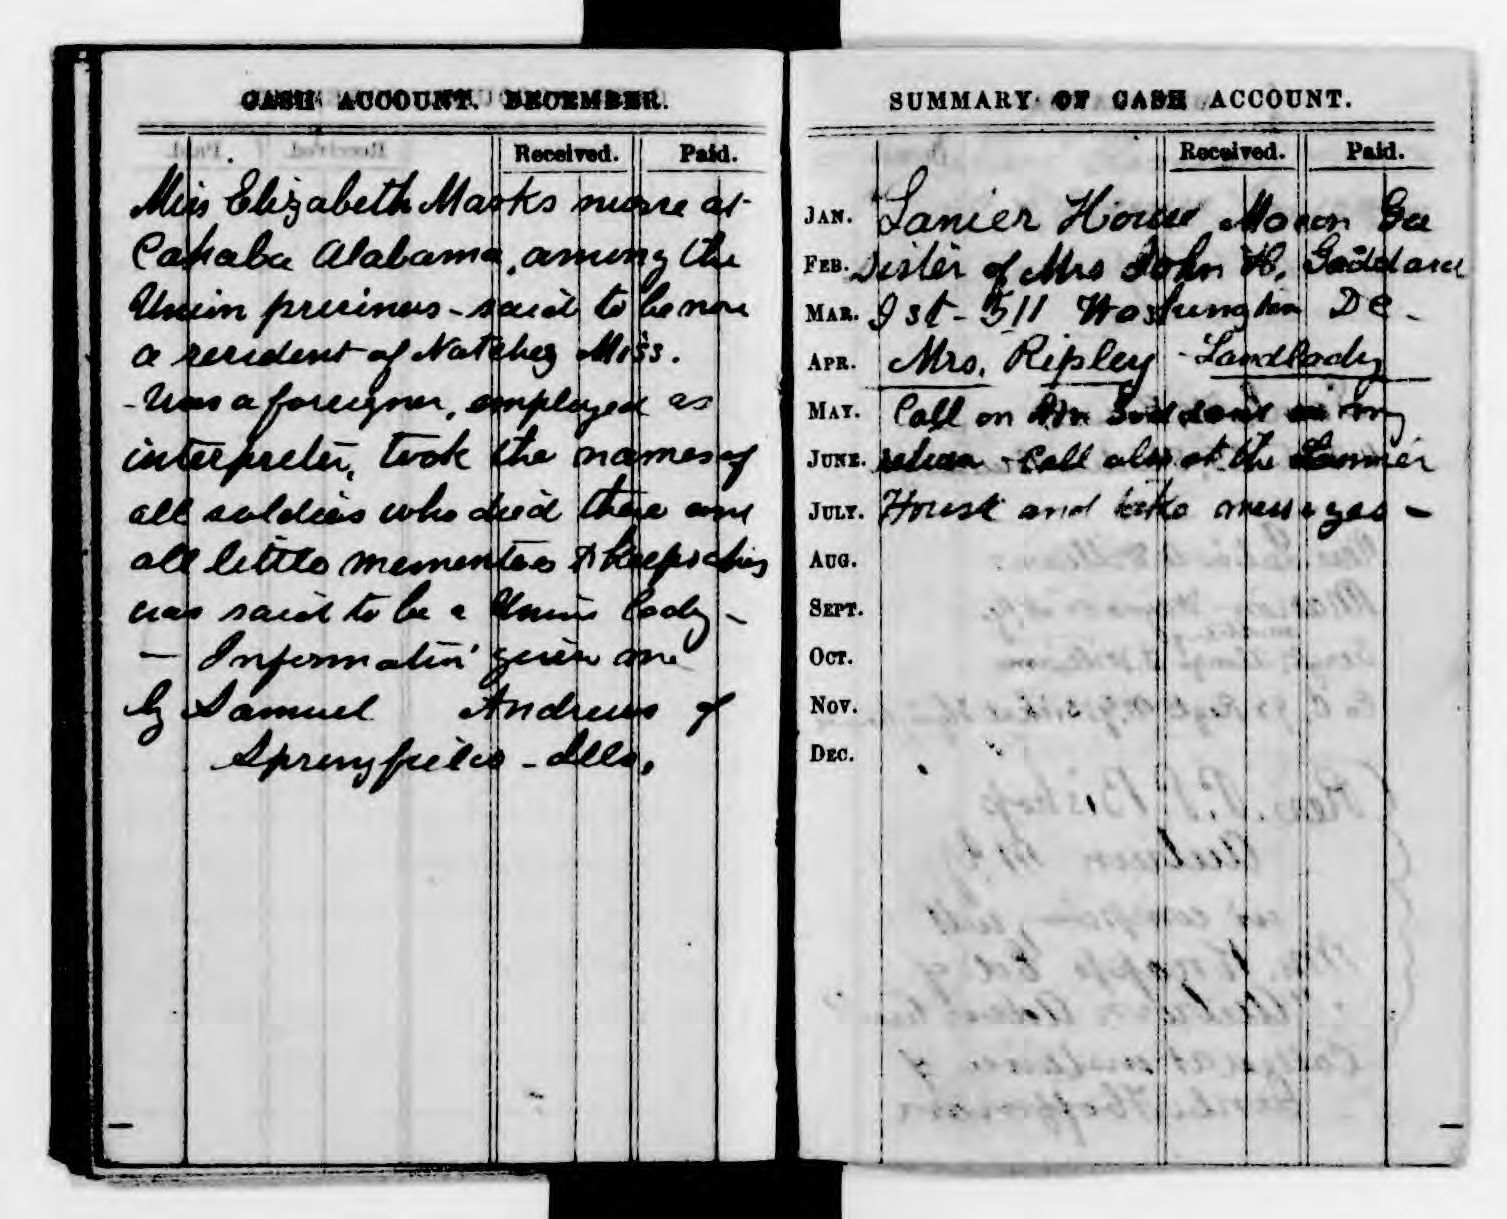 CASH ACCOUNT. DECEMBER.
Received. Paid.
Miss Elizabeth Marks nurse at
Cahaba Alabama, among the
Union prisoners - said to be now
a resident of Natchez Miss.
- Was a foreigner, employed as
interpreter, took the names of
all soldiers who died there and
all little mementoes & keepsakes
was said to be a Union lady -
- Information given me
by Samuel Andrews of
Springfield - Ills.
SUMMARY OF CASH ACCOUNT.
Received. Paid.
JAN. Lanier House Macon Ga
FEB. Sister of Mrs John H. Goddard
MAR. I st - 511 Washington DC -
APR. Mrs. Ripley - Landlady
MAY. Call on on my
JUNE. return - Call also at the Lanier
JULY. House and take messages -
AUG.
SEPT.
OCT.
NOV.
DEC.